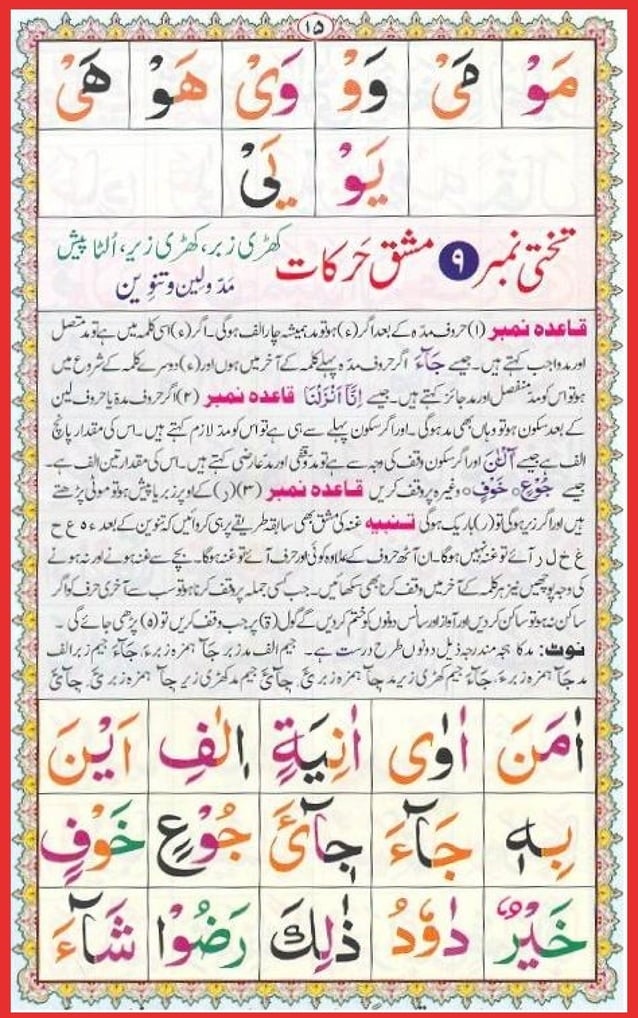 ١٥
مَوْ مَیْ وَوْ وَیْ هَوْ هَیْ
یَوْ یَیْ
تختی نمبر ۹ مشق حَرکات کھڑی زبر، کھڑی زیر، اُلٹا پیش
مدّ ولین و تنوین
قاعدہ نمبر (۱) حروف مدّہ کے بعد اگر (ء) ہو تو مد ہمیشہ چار الف ہوگی۔ اگر (ء) اسی کلمہ میں ہے تو مد متصل
اور مد واجب کہتے ہیں۔ جیسے جَآءَ اگر حروف مدّہ پہلے کلمہ کے آخر میں ہوں اور (ء) دوسرے کلمہ کے شروع میں
ہو تو اس کو مد منفصل اور مد جائز کہتے ہیں۔ جیسے اِنَّآ اَنْزَلْنَا قاعدہ نمبر (۲) اگر حروف مدّہ یا حروف لین
کے بعد سکون ہو تو وہاں بھی مد ہوگی۔ اور اگر سکون پہلے سے ہی ہے تو اس کو مدّ لازم کہتے ہیں۔ اس کی مقدار پانچ
الف ہے جیسے آلْئٰنَ اور اگر سکون وقف کی وجہ سے ہے تو مد وقفی اور مد عارضی کہتے ہیں۔ اس کی مقدار تین الف ہے۔
جیسے جُوْعٍ ۝ خَوْفٍ ۝ وغیرہ پر وقف کریں قاعدہ نمبر (۳) (ر) کے اوپر زبر یا پیش ہو تو موٹی پڑھتے
ہیں اور اگر زیر ہوگی تو (ر) باریک ہوگی تنبیہ غنہ کی مشق بھی سابقہ طریقے پر ہی کروائیں کہ تنوین کے بعد ء ہ ع ح
غ خ ل ر آئے تو غنہ نہیں ہوگا۔ ان آٹھ حروف کے علاوہ کوئی اور حرف آئے تو غنہ ہوگا۔ بچے سے غنہ ہونے اور نہ ہونے
کی وجہ پوچھیں نیز ہر کلمہ کے آخر میں وقف کرنا بھی سکھائیں۔ جب کسی جملہ پر وقف کرنا ہو تو سب سے آخری حرف کو اگر
ساکن نہ ہو تو ساکن کر دیں اور آواز اور سانس دونوں کو ختم کر دیں گے گول (ۃ) پر جب وقف کریں تو (ہ) پڑھی جائے گی۔
نوٹ: مد کا ہجہ مندرجہ ذیل دونوں طرح درست ہے۔ جیم الف مد زبر جَآ ہمزہ زبر ءَ، جَآءَ جیم زبر الف
مد جَآ ہمزہ زبر ءَ، جَآءَ جیم کھڑی زیر مد جِآ ہمزہ زبر ئَ، جِآئَ جیم مد کھڑی زیر جِآ ہمزہ زبر ئَ، جِآئَ
اٰمَنَ اٰوٰی اٰنِیَةٍ اِلٰفِ اَیْنَ
بِهٖ جَآءَ جِآیْٓئَ جُوْعٍ خَوْفٍ
خَیْرٌ دَاوٗدُ ذٰلِكَ رَضُوْا شَآءَ